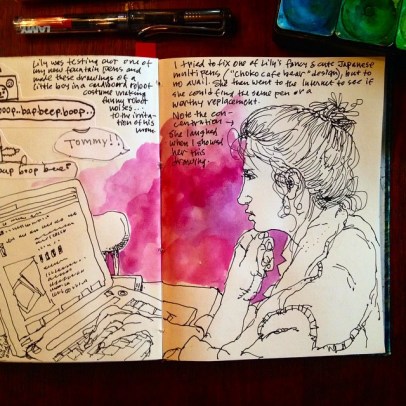 Lily was testing out one of
my new fountain pens and
made these drawings of a
little boy in a cardboard robot
costume making
funny robot
noises...
to the irrita-
tion of his
mom
boop..bapbeep.boop..
Tommy!!
bap boop beer
I tried to fix one of Lily's fancy & cute Japanese
multipens ("choko cafe bear" design), but to
no avail. She then went to the internet to see if
she could find the same pen or a
worthy replacement.
Note the con-
centration →
She laughed
when I showed
her this
drawing.
LAMY